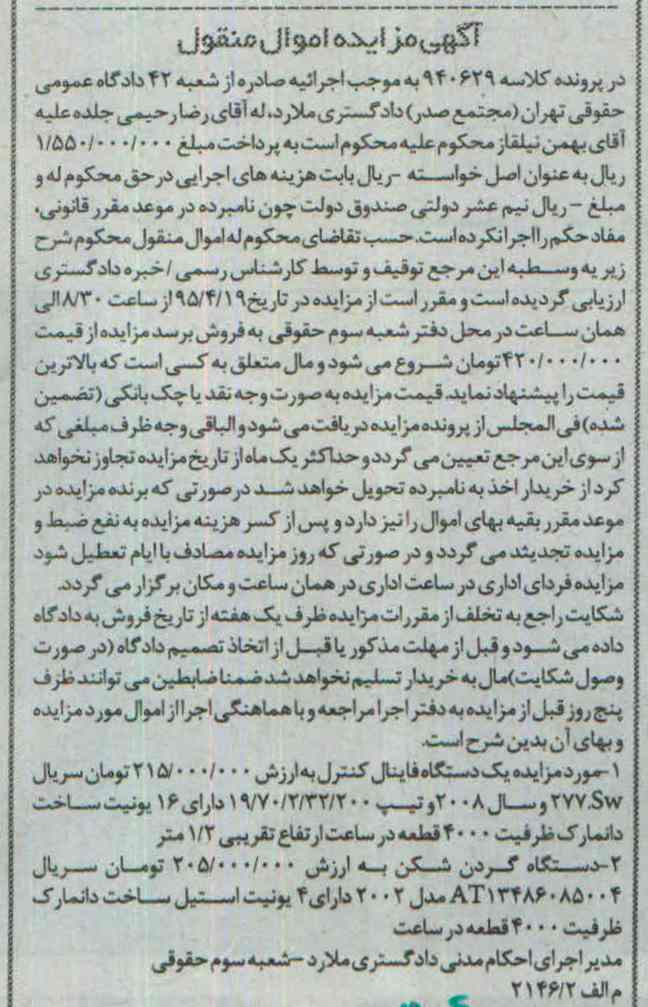 آگهی مزایده اموال منقول
در پرونده کلاسه ۹۴۰۶۲۹ به موجب اجرائیه صادره از شعبه ۴۲ دادگاه عمومی
حقوقی تهران (مجتمع صدر) دادگستری ملارد، له آقای رضا رحیمی جلده علیه
آقای بهمن نیلقاز محکوم علیه محکوم است به پرداخت مبلغ ۱/۵۵۰/۰۰۰/۰۰۰
ریال به عنوان اصل خواسته -ریال بابت هزینه های اجرایی در حق محکوم له و
مبلغ – ریال نیم عشر دولتی صندوق دولت چون نامبرده در موعد مقرر قانونی،
مفاد حکم را اجرا نکرده است. حسب تقاضای محکوم له اموال منقول محکوم شرح
زیر یه وسطبه این مرجع توقیف و توسط کارشناس رسمی /خبره دادگستری
ارزیابی گردیده است و مقرر است از مزایده در تاریخ ۹۵/۴/۱۹ از ساعت ۸/۳۰ الی
همان ساعت در محل دفتر شعبه سوم حقوقی به فروش برسد مزایده از قیمت
۴۲۰/۰۰۰/۰۰۰ تومان شروع می شود و مال متعلق به کسی است که بالاترین
قیمت را پیشنهاد نماید. قیمت مزایده به صورت وجه نقد یا چک بانکی (تضمین
شده) فی المجلس از پرونده مزایده دریافت می شود و الباقی وجه ظرف مبلغی که
از سوی این مرجع تعیین می گردد و حداکثر یک ماه از تاریخ مزایده تجاوز نخواهد
کرد از خریدار اخذ به نامبرده تحویل خواهد شد در صورتی که برنده مزایده در
موعد مقرر بقیه بهای اموال را نیز دارد و پس از کسر هزینه مزایده به نفع ضبط و
مزایده تجدیثد می گردد و در صورتی که روز مزایده مصادف با ایام تعطیل شود
مزایده فردای اداری در ساعت اداری در همان ساعت و مکان برگزار می گردد.
شکایت راجع به تخلف از مقررات مزایده ظرف یک هفته از تاریخ فروش به دادگاه
داده می شود و قبل از مهلت مذکور یا قبل از اتخاذ تصمیم دادگاه (در صورت
وصول شکایت) مال به خریدار تسلیم نخواهد شد ضمنا ضابطین می توانند ظرف
پنج روز قبل از مزایده به دفتر اجرا مراجعه و با هماهنگی اجرا از اموال مورد مزایده
و بهای آن بدین شرح است.
۱-مورد مزایده یک دستگاه فاینال کنترل به ارزش ۲۱۵/۰۰۰/۰۰۰ تومان سریال
۲۷۷.Sw و سال ۲۰۰۸ و تیپ ۱۹/۷۰/۲/۳۲/۲۰۰ دارای ۱۶ یونیت ساخت
دانمارک ظرفیت ۴۰۰۰ قطعه در ساعت ارتفاع تقریبی ۱/۲ متر
۲-دستگاه گردن شکن به ارزش ۲۰۵/۰۰۰/۰۰۰ تومان سریال
AT۱۳۴۸۶۰۸۵۰۰۴ مدل ۲۰۰۲ دارای ۴ یونیت استیل ساخت دانمارک
ظرفیت ۴۰۰۰ قطعه در ساعت
مدیر اجرای احکام مدنی دادگستری ملارد –شعبه سوم حقوقی
م الف ۲۱۴۶/۲